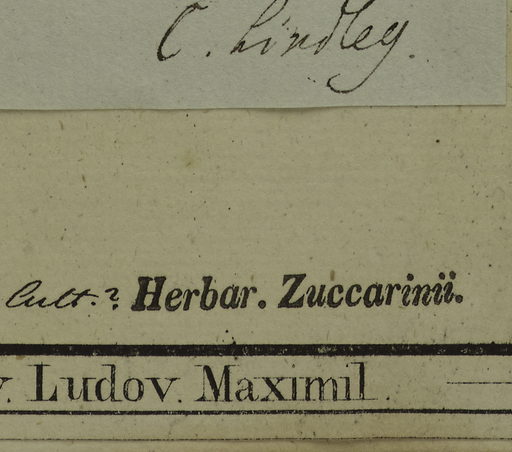 C. Lindley.
Cult.? Herbar. Zuccarinii.
v. Ludov. Maximil.